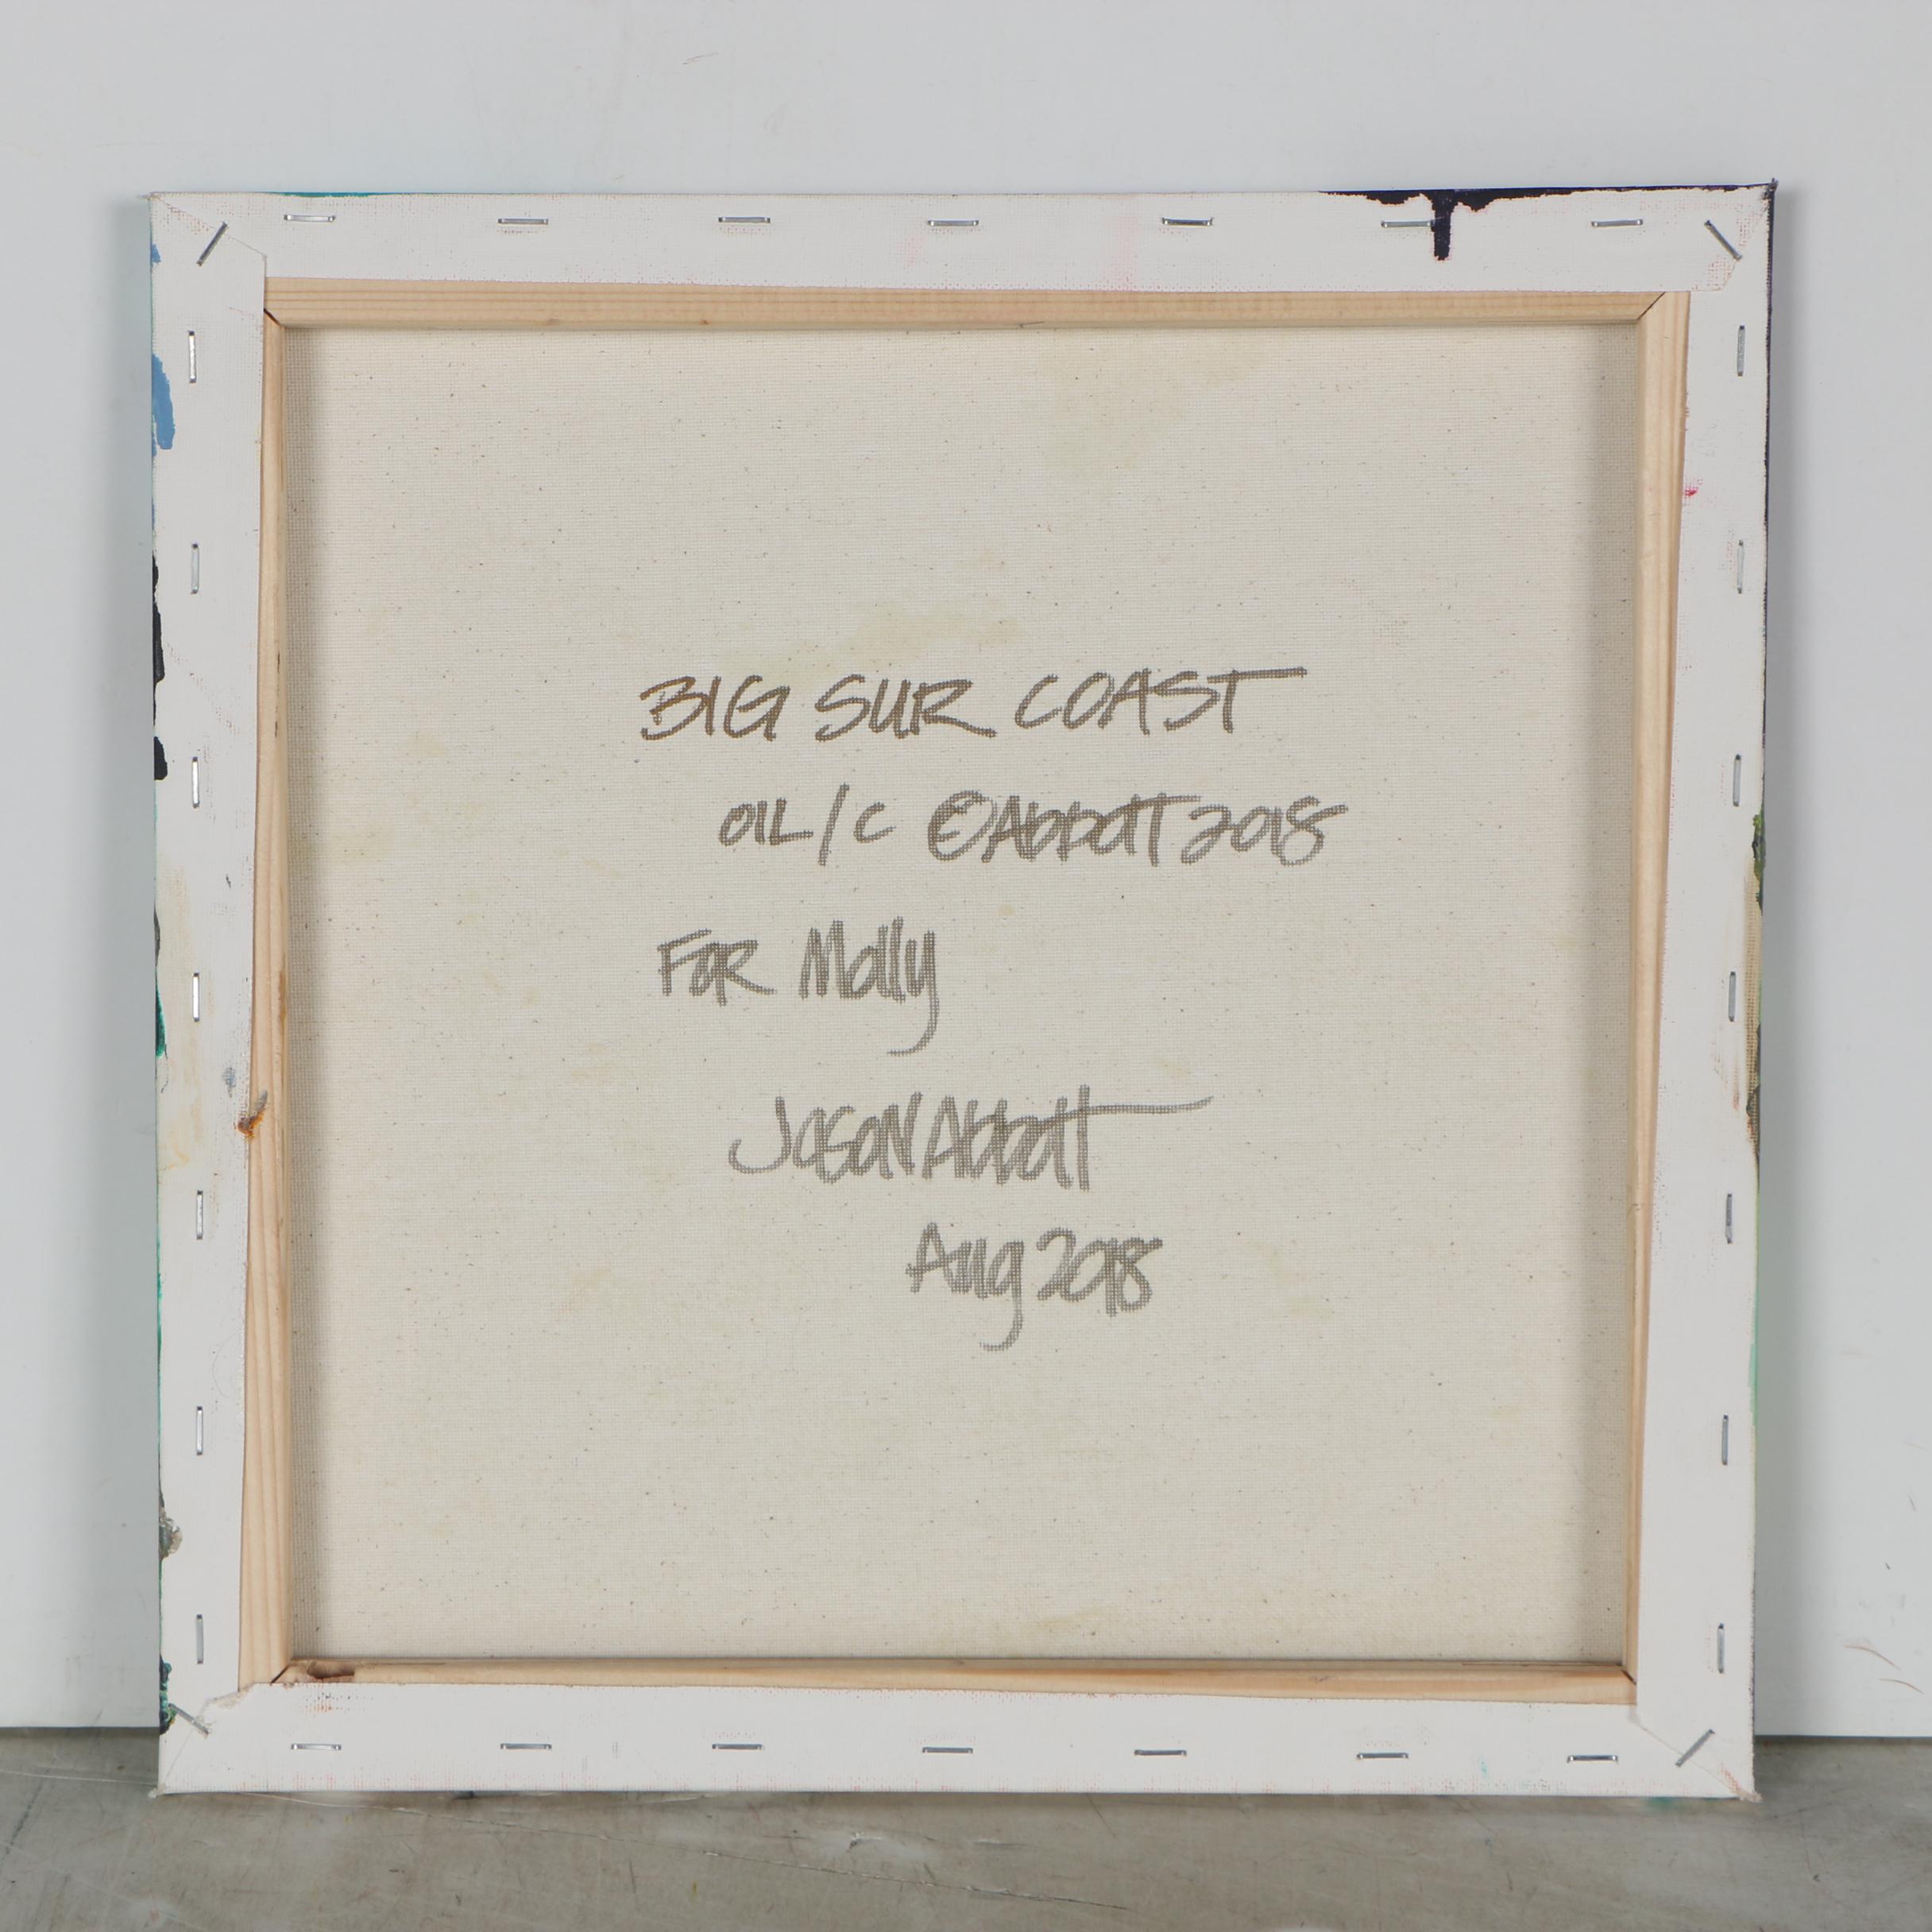 BIG SUR COAST
OIL/C ©Abbott 2018
FOR Molly
Jason Abbott
Aug 2018